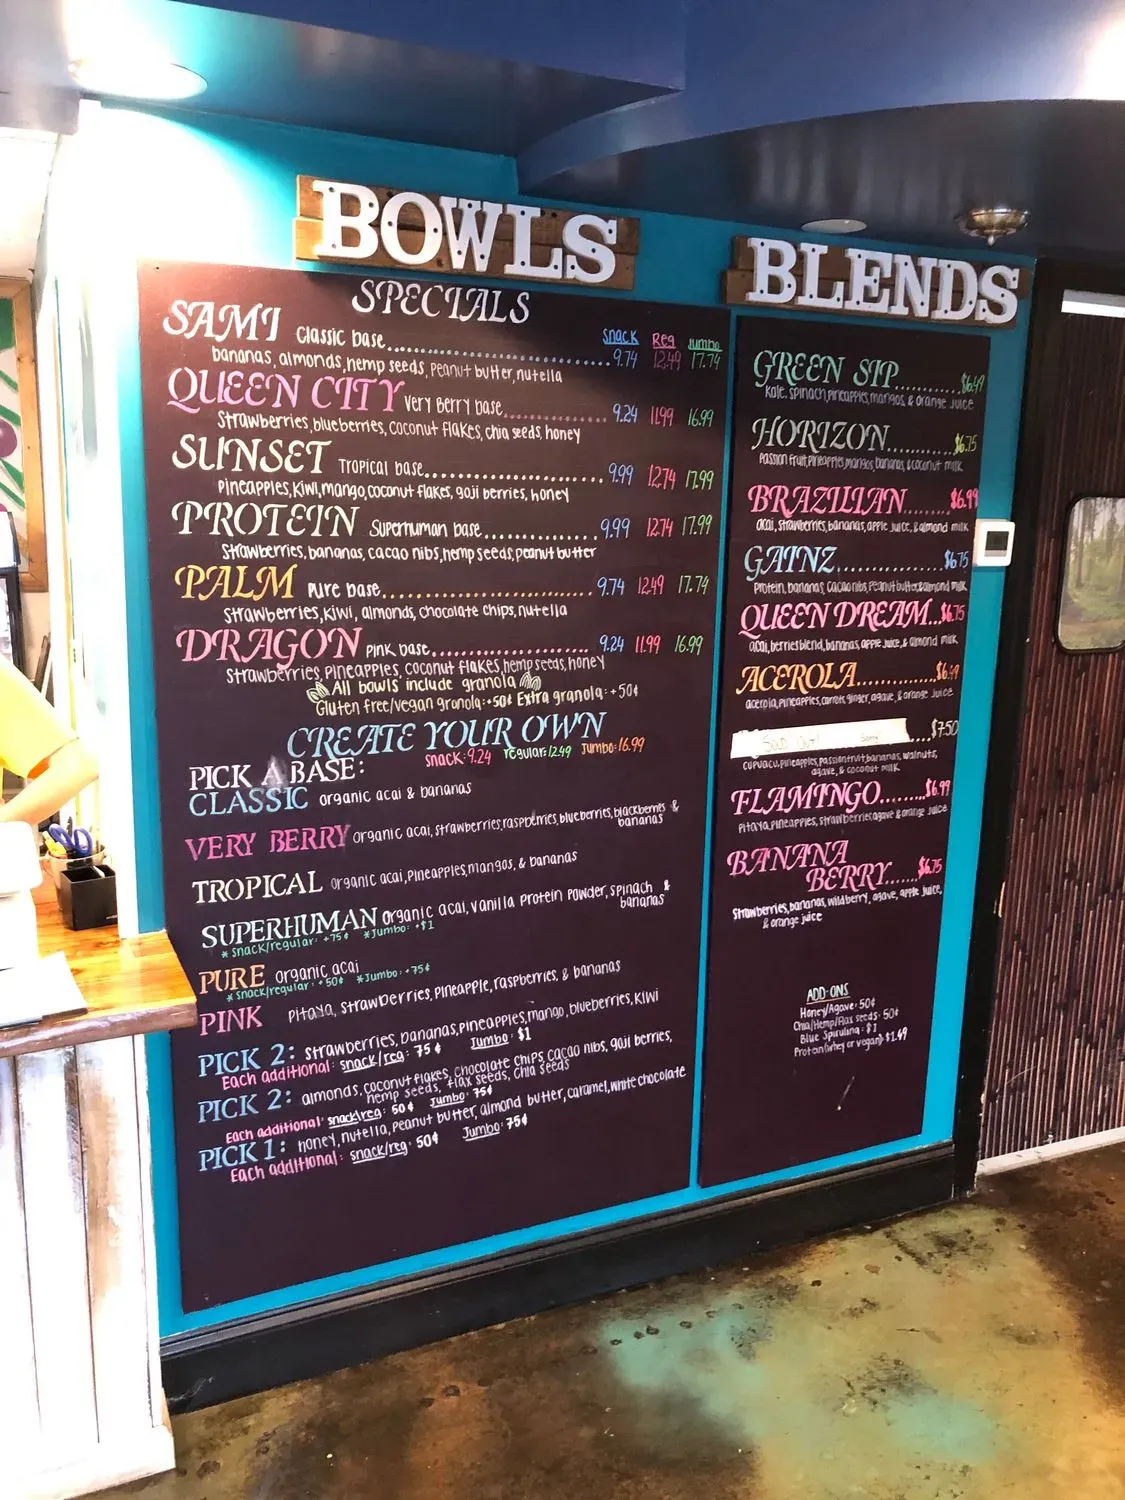 BOWLS
SPECIALS
Snack Reg Jumbo
SAMI Classic base 9.74 12.49 17.74
bananas, almonds, hemp seeds, peanut butter, nutella
QUEEN CITY Very Berry base 9.24 11.99 16.99
Strawberries, blueberries, coconut flakes, chia seeds, honey
SUNSET Tropical base 9.99 12.74 17.99
Pineapples, Kiwi, mango, coconut flakes, goji berries, honey
PROTEIN Superhuman base 9.99 12.74 17.99
Strawberries, bananas, cacao nibs, hemp seeds, peanut butter
PALM Pure base 9.74 12.49 17.74
Strawberries, Kiwi, almonds, chocolate chips, nutella
DRAGON Pink base 9.24 11.99 16.99
Strawberries, pineapples, coconut flakes, hemp seeds, honey
All bowls include granola
Gluten free/vegan granola: +50¢ Extra granola: +50¢
CREATE YOUR OWN
Snack: 9.24 regular: 12.49 Jumbo: 16.99
PICK A BASE:
CLASSIC organic acai & bananas
VERY BERRY organic acai, strawberries, raspberries, blueberries, blackberries &
bananas
TROPICAL organic acai, Pineapples, mangos, & bananas
SUPERHUMAN organic acai, vanilla Protein Powder, spinach &
bananas
* snack/regular: +75¢ * Jumbo: +$1
PURE organic acai
* snack/regular: +50¢ * Jumbo: +75¢
PINK Pitaya, strawberries, Pineapple, raspberries, & bananas
PICK 2: strawberries, bananas, pineapples, mango, blueberries, Kiwi
Each additional: snack/reg: 75¢ Jumbo: $1
PICK 2: almonds, coconut flakes, chocolate chips, cacao nibs, goji berries,
hemp seeds, flax seeds, chia seeds
Each additional: snack/reg: 50¢ Jumbo: 75¢
PICK 1: honey, nutella, Peanut butter, almond butter, caramel, white chocolate
Each additional: snack/reg: 50¢ Jumbo: 75¢
BLENDS
GREEN SIP $6.49
Kale, spinach, pineapples, mangos, & orange juice
HORIZON $6.75
Passion fruit, pineapples, mangos, bananas, & coconut milk
BRAZILIAN $6.99
acai, strawberries, bananas, apple juice, & almond milk
GAINZ $6.75
Protein, bananas, cacao nibs, Peanut butter & almond milk
QUEEN DREAM $6.75
acai, berries blend, bananas, apple juice, & almond milk
ACEROLA $6.49
acerola, pineapples, carrots, ginger, agave, & orange juice
SOLD OUT! $7.50
cupuacu, pineapples, passionfruit, bananas, walnuts,
agave, & coconut milk
FLAMINGO $6.99
Pitaya, Pineapples, strawberries, agave & orange juice
BANANA
BERRY $6.75
Strawberries, bananas, wildberry, agave, apple juice,
& orange juice
ADD-ONS
Honey/Agave: 50¢
Chia/Hemp/Flax seeds: 50¢
Blue Spirulina: $1
Protein (whey or vegan): $1.49